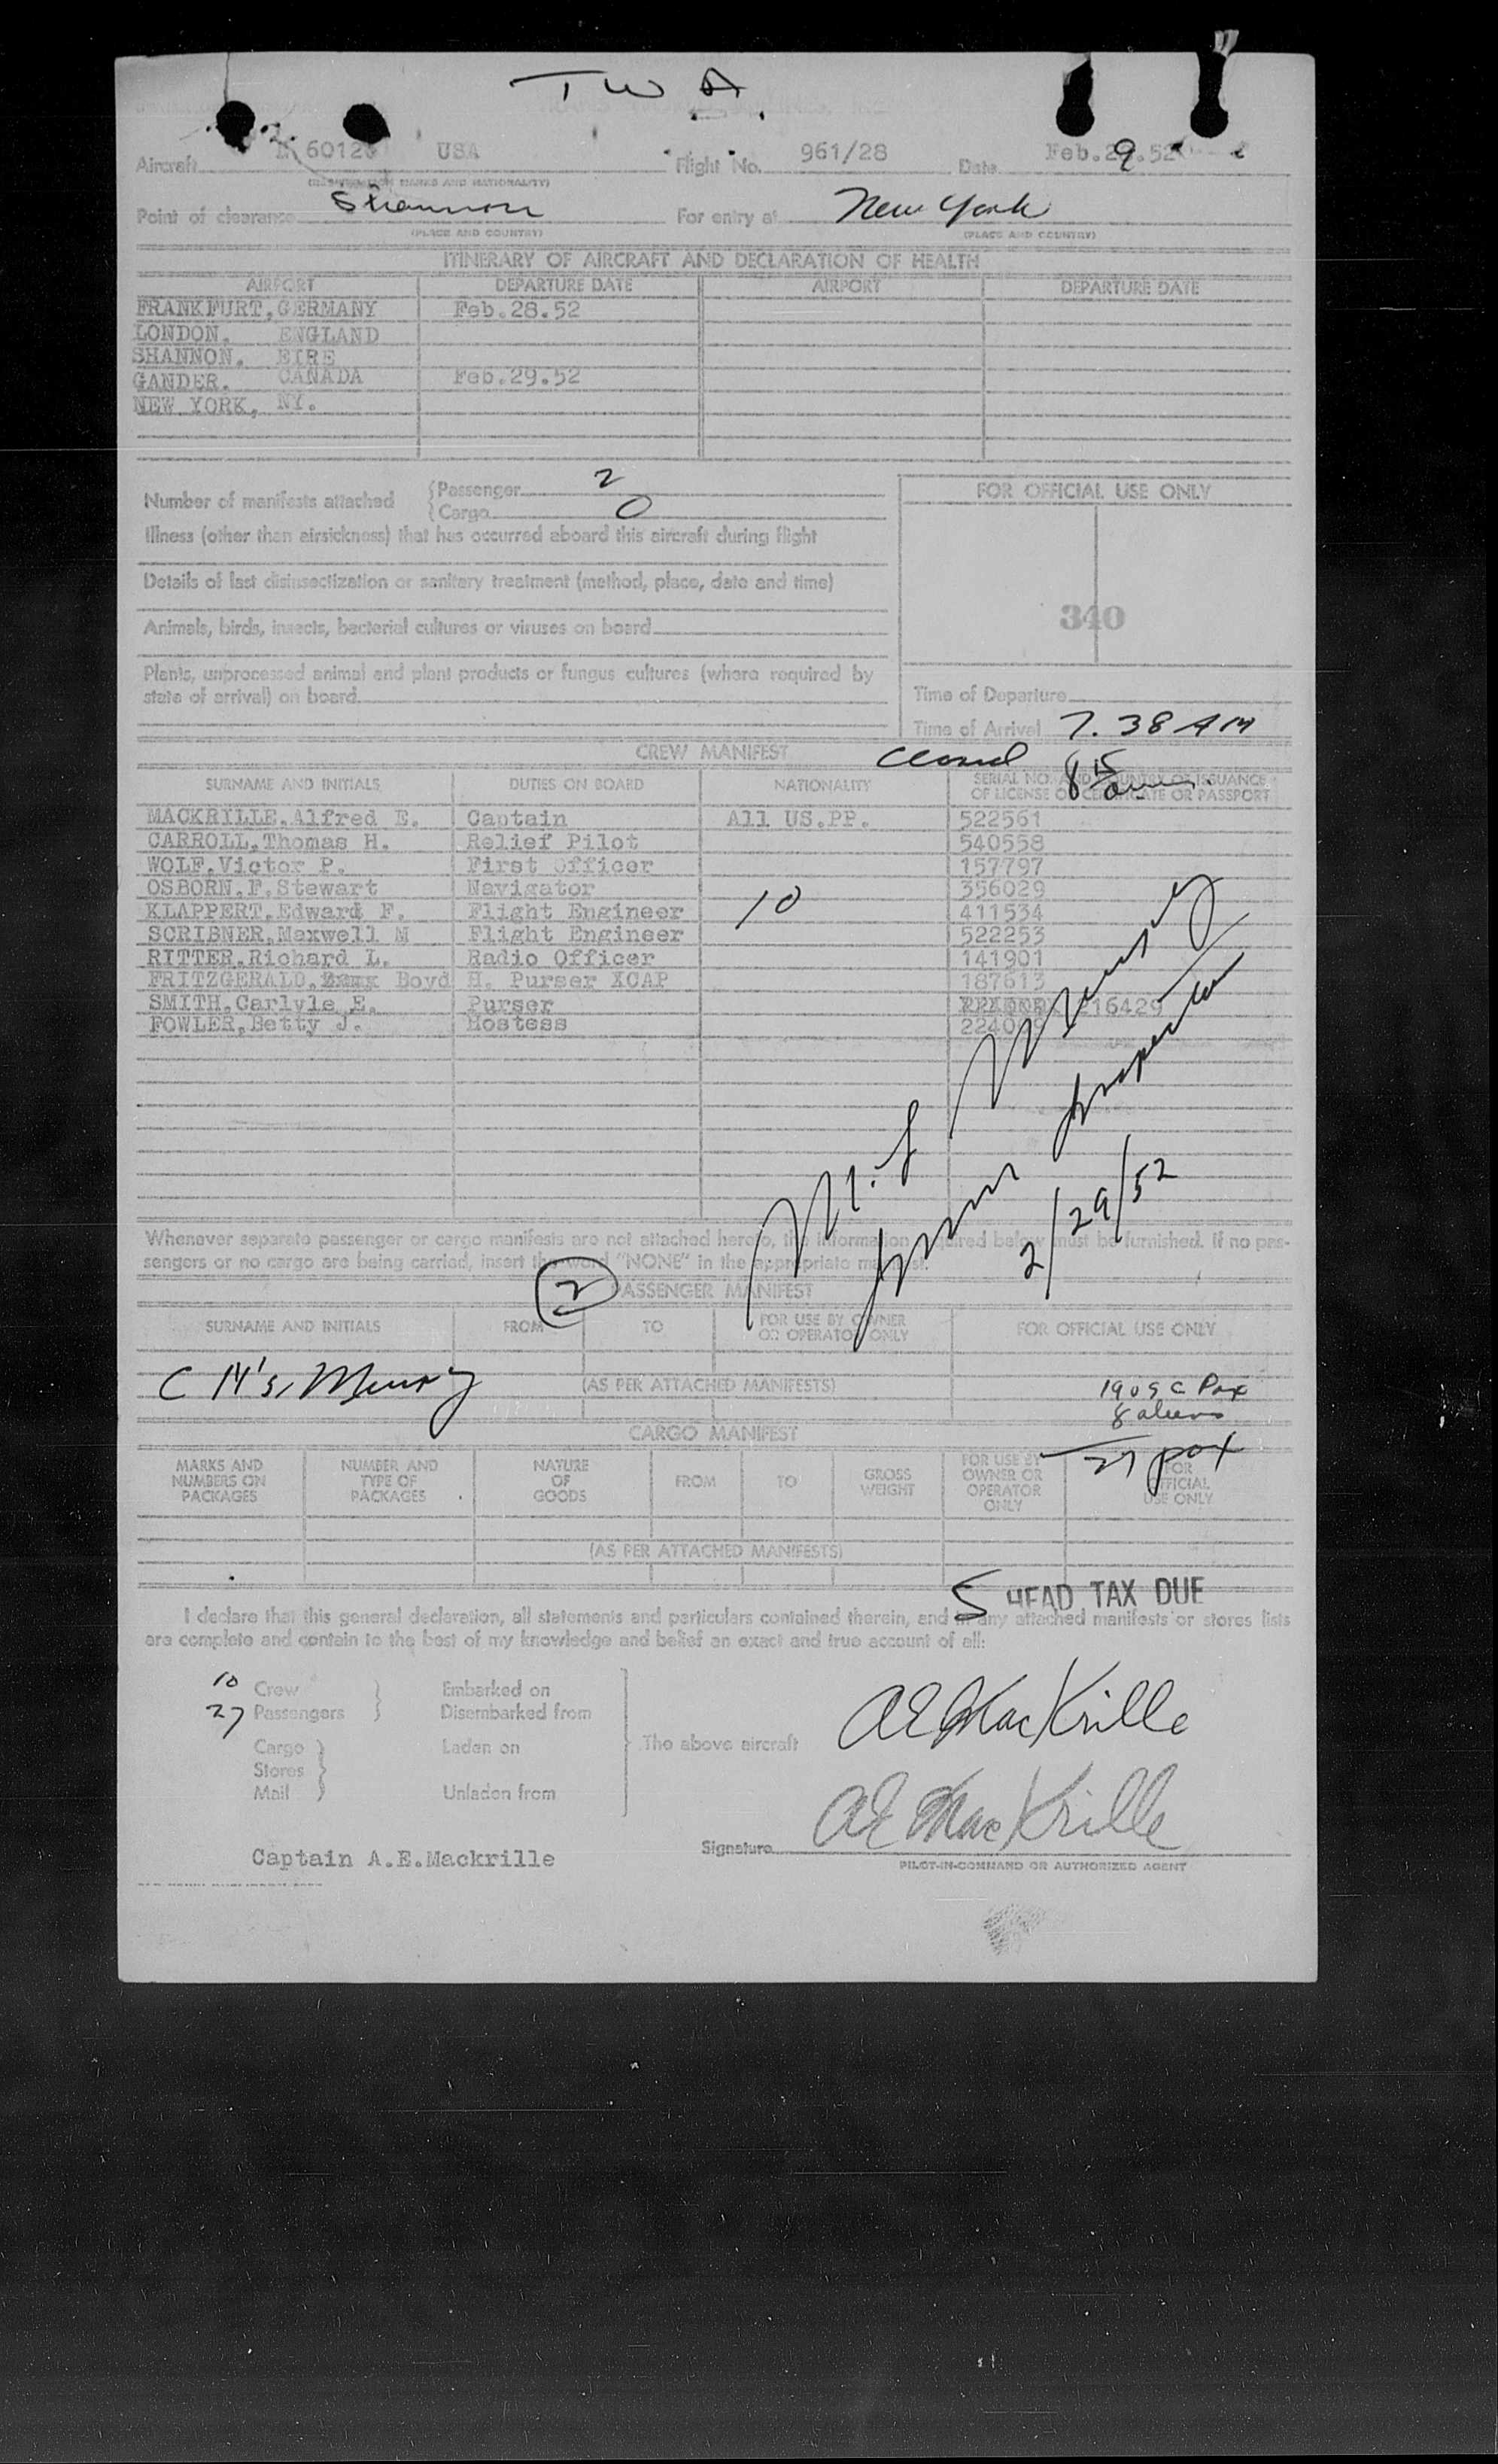 T W A
Aircraft USA Flight No. 961/28 Date Feb. 29.52
(REGISTRATION MARKS AND NATIONALITY)
Point of clearance Shannon For entry at New York
(PLACE AND COUNTRY) (PLACE AND COUNTRY)
ITINERARY OF AIRCRAFT AND DECLARATION OF HEALTH
AIRPORT DEPARTURE DATE AIRPORT DEPARTURE DATE
FRANKFURT, GERMANY Feb.28.52
LONDON. ENGLAND
SHANNON. EIRE
GANDER. CANADA Feb.29.52
NEW YORK, NY.
Number of manifests attached Passenger 2
Cargo 0
FOR OFFICIAL USE ONLY
Illness (other than airsickness) that has occurred aboard this aircraft during flight
Details of last disinsectization or sanitary treatment (method, place, date and time)
340
Animals, birds, insects, bacterial cultures or viruses on board
Plants, unprocessed animal and plant products or fungus cultures (where required by
state of arrival) on board
Time of Departure
Time of Arrival 7.38 AM
CREW MANIFEST
SURNAME AND INITIALS DUTIES ON BOARD NATIONALITY SERIAL NO. AND COUNTRY OF ISSUANCE
OF LICENSE OR CERTIFICATE OR PASSPORT
MACKRILLE,Alfred E. Captain All US.PP. 522561
CARROLL,Thomas H. Relief Pilot 540558
WOLF,Victor P. First Officer 157797
OSBORN,F,Stewart Navigator 356029
KLAPPERT,Edward F. Flight Engineer 10 411534
SCRIBNER,Maxwell M Flight Engineer 522253
RITTER,Richard L. Radio Officer 141901
FRITZGERALD, Boyd H. Purser XCAP 187613
SMITH,Carlyle E. Purser 216429
FOWLER,Betty J. Hostess
Immn Inspector
2/29/52
Whenever separate passenger or cargo manifests are not attached hereto, the information required below must be furnished. If no pas-
sengers or no cargo are being carried, insert the word "NONE" in the appropriate manifest.
2 PASSENGER MANIFEST
SURNAME AND INITIALS FROM TO FOR USE BY OWNER
OR OPERATOR ONLY FOR OFFICIAL USE ONLY
(AS PER ATTACHED MANIFESTS)
8 aliens
27 pax
CARGO MANIFEST
MARKS AND
NUMBERS ON
PACKAGES NUMBER AND
TYPE OF
PACKAGES NATURE
OF
GOODS FROM TO GROSS
WEIGHT FOR USE BY
OWNER OR
OPERATOR
ONLY FOR
OFFICIAL
USE ONLY
(AS PER ATTACHED MANIFESTS)
5 HEAD TAX DUE
I declare that this general declaration, all statements and particulars contained therein, and in any attached manifests or stores lists
are complete and contain to the best of my knowledge and belief an exact and true account of all:
10 Crew Embarked on
27 Passengers Disembarked from
Cargo Laden on The above aircraft AE MacKrille
Stores
Mail Unladen from
Signature AE MacKrille
Captain A.E.Mackrille
PILOT-IN-COMMAND OR AUTHORIZED AGENT